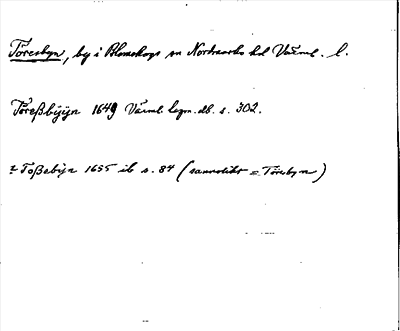 Töresbyn, by i Blomskogs sn Nordmarks hd Värml. l.
Töreßbÿÿn 1649 Värml. legm. db. s. 302.
± Toßebÿn 1655 ib s. 84 (sannolikt = Töresbyn)